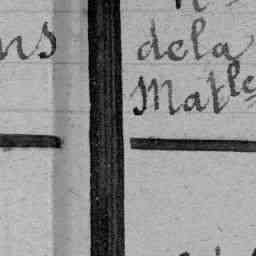 ns
dela
Matle